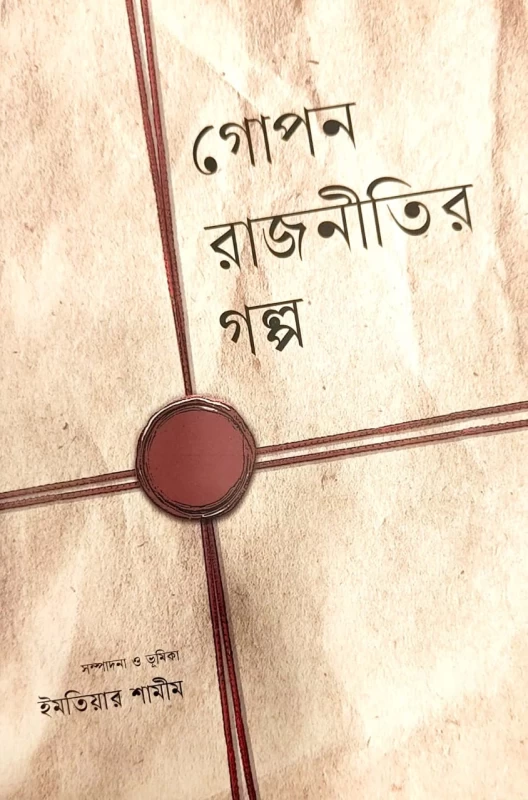 গোপন
রাজনীতির
গল্প
সম্পাদনা ও ভূমিকা
ইমতিয়ার শামীম